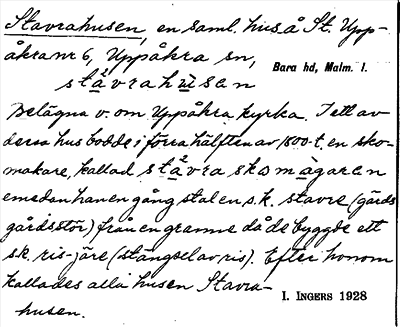 Stavrahusen, en saml. hus å St. Upp-
åkra nr 6, Uppåkra sn,
Bara hd, Malm. l.
stàvrahùsan
Belägna v. om Uppåkra kyrka. I ett av
dessa hus bodde i förra hälften av 1800-t. en sko-
makare, kallad stàvra skomàgaren
emedan han en gång stal en s.k. stavre (gärds
gårdsstör) från en granne då de byggde ett
s.k. ris-järe (stängsel av ris). Efter honom
kallades alla husen Stavra-
husen.
I. INGERS 1928